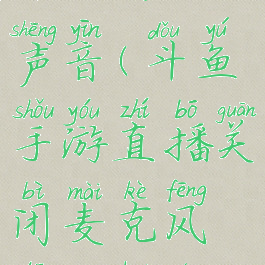 shēng yīn dǒu yú
声音(斗鱼
shǒu yóu zhí bō guān
手游直播关
bì mài kè fēng
闭麦克风